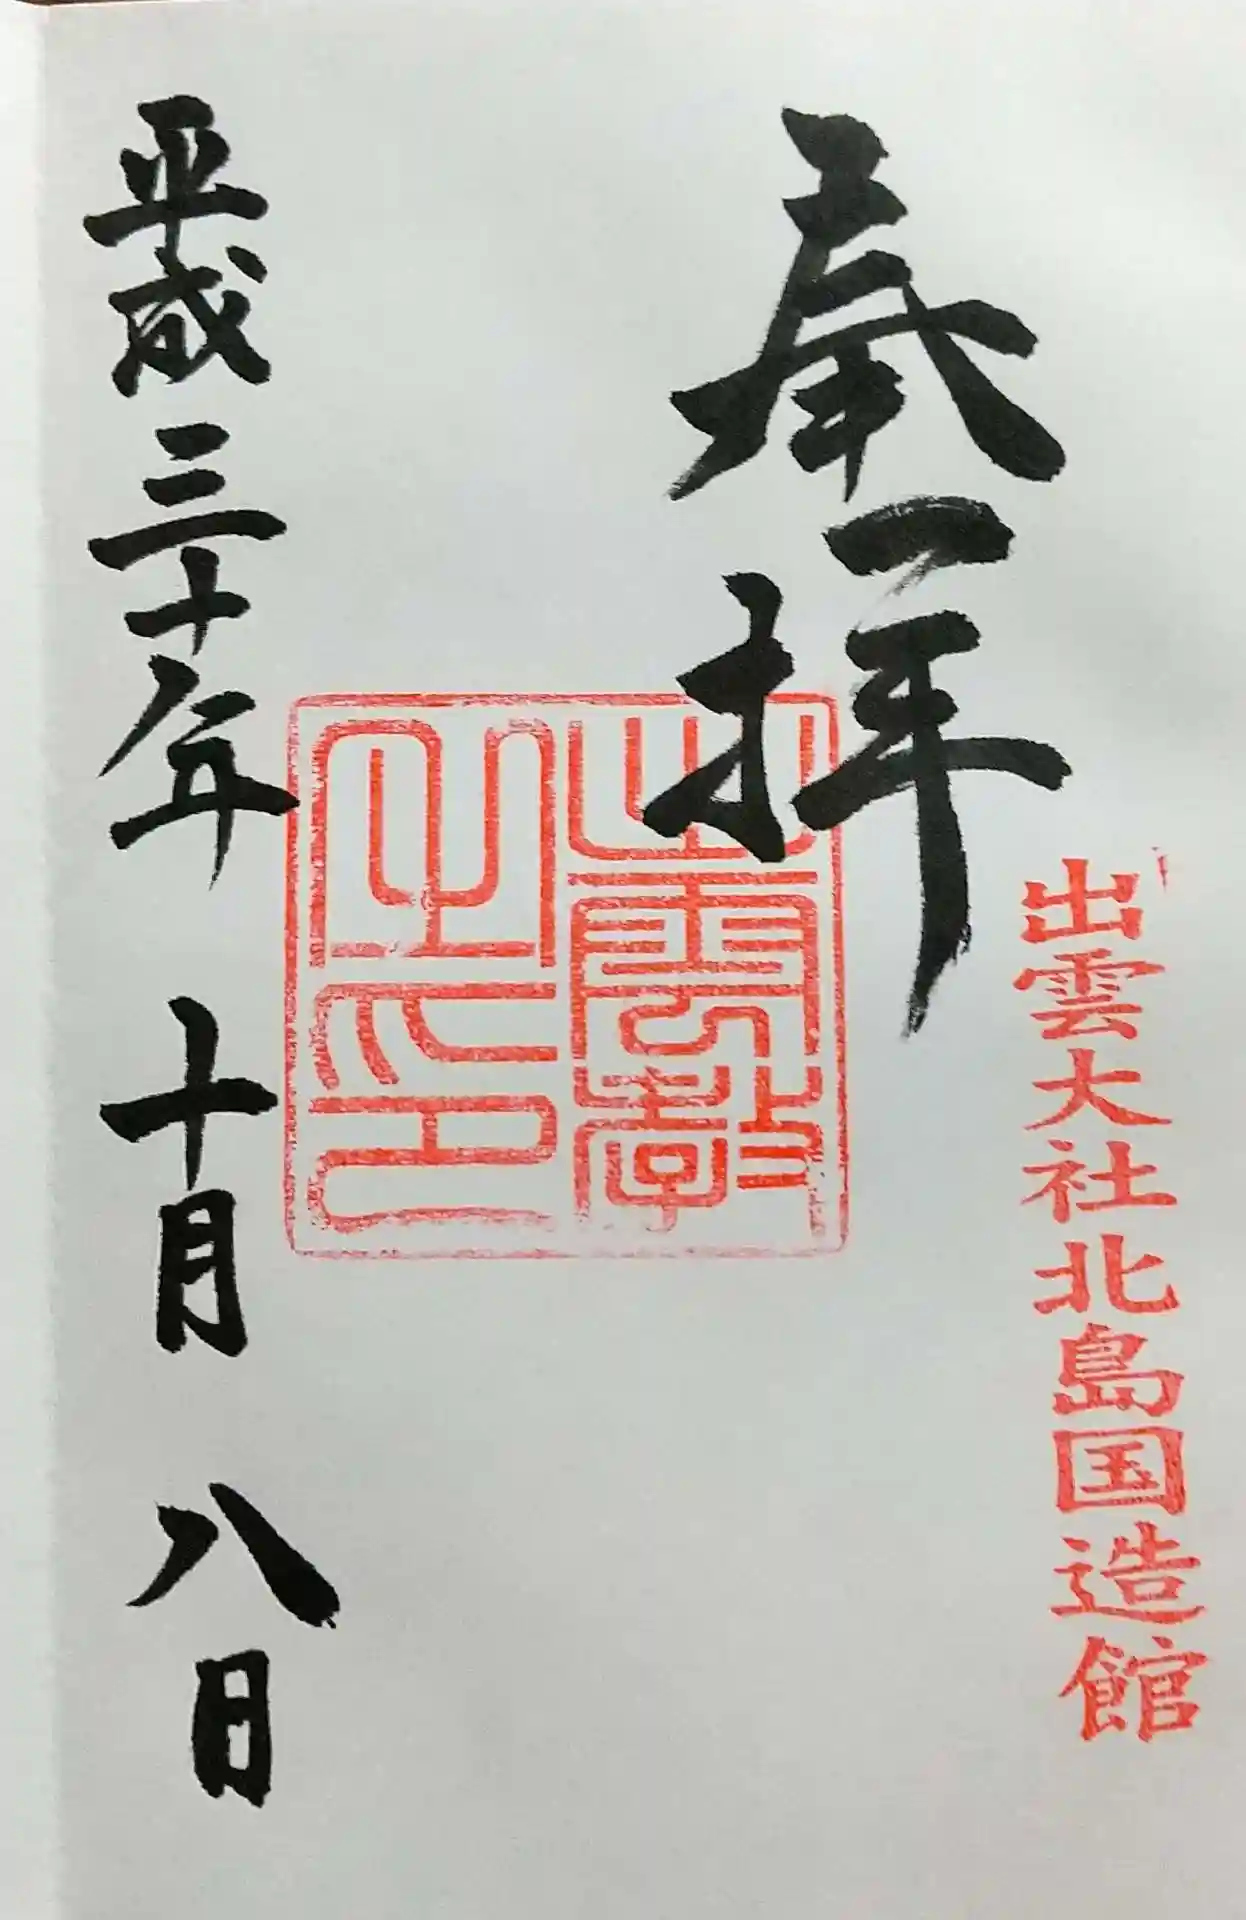 奉拝
出雲大社北島国造館
出雲教之印
平成三十年 十月 八日